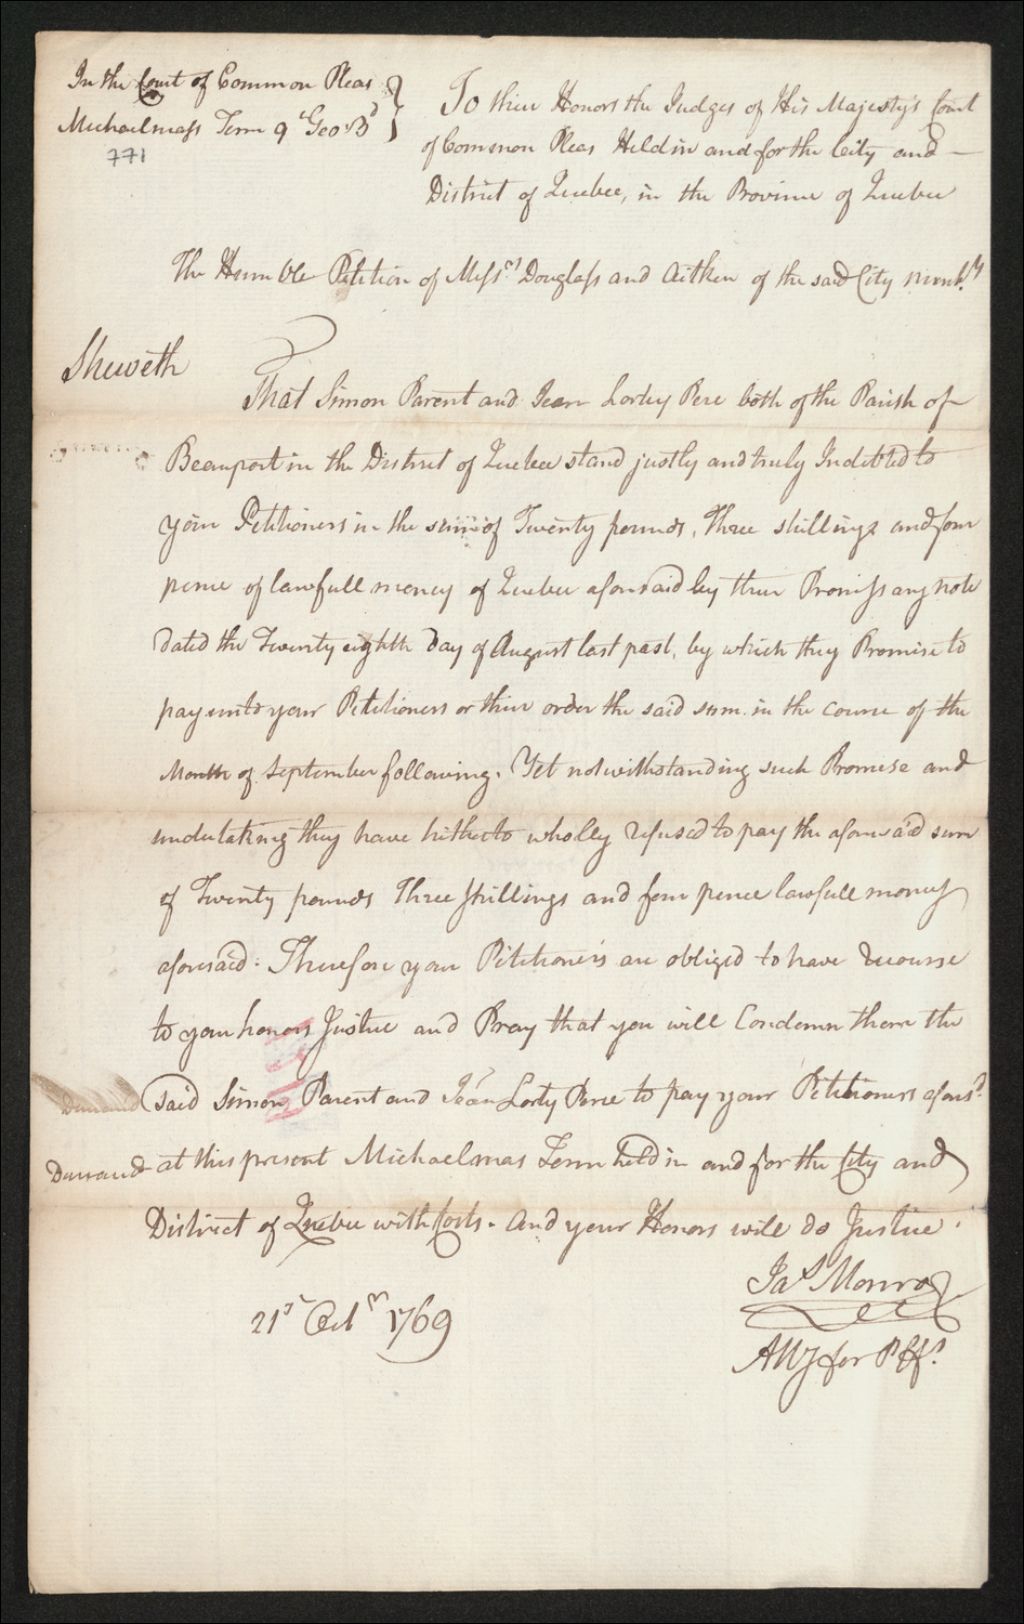 In the Court of Common Pleas
Michaelmass Term 9th Geo. 3d
771
To their Honors the Judges of His Majesty's Court
of Common Pleas Held in and for the City and
District of Quebec, in the Province of Quebec
The Humble Petition of Messrs Douglass and Aitken of the said City Merchts
Sheweth
That Simon Parent and Jean Lorty Pere both of the Parish of
Beauport in the District of Quebec stand justly and truly Indebted to
your Petitioners in the sum of Twenty pounds, Three shillings and four
pence of lawfull money of Quebec aforesaid by their Promissary note
dated the Twenty eighth Day of August last past, by which they Promise to
pay unto your Petitioners or their order the said sum in the course of the
Month of September following. Yet notwithstanding such Promise and
undertaking they have hitherto wholly refused to pay the aforesaid sum
of Twenty pounds Three Shillings and four pence lawfull money
aforesaid: Therefore your Petitioners are obliged to have recourse
to your honors Justice and Pray that you will Condemn them the
said Simon Parent and Jean Lorty Pere to pay your Petitioners aforsd
Demand at this present Michaelmas Term held in and for the City and
District of Quebec with Costs. And your Honors will do Justice.
Jas Monro
21st Octr 1769
Atty for Plffs.